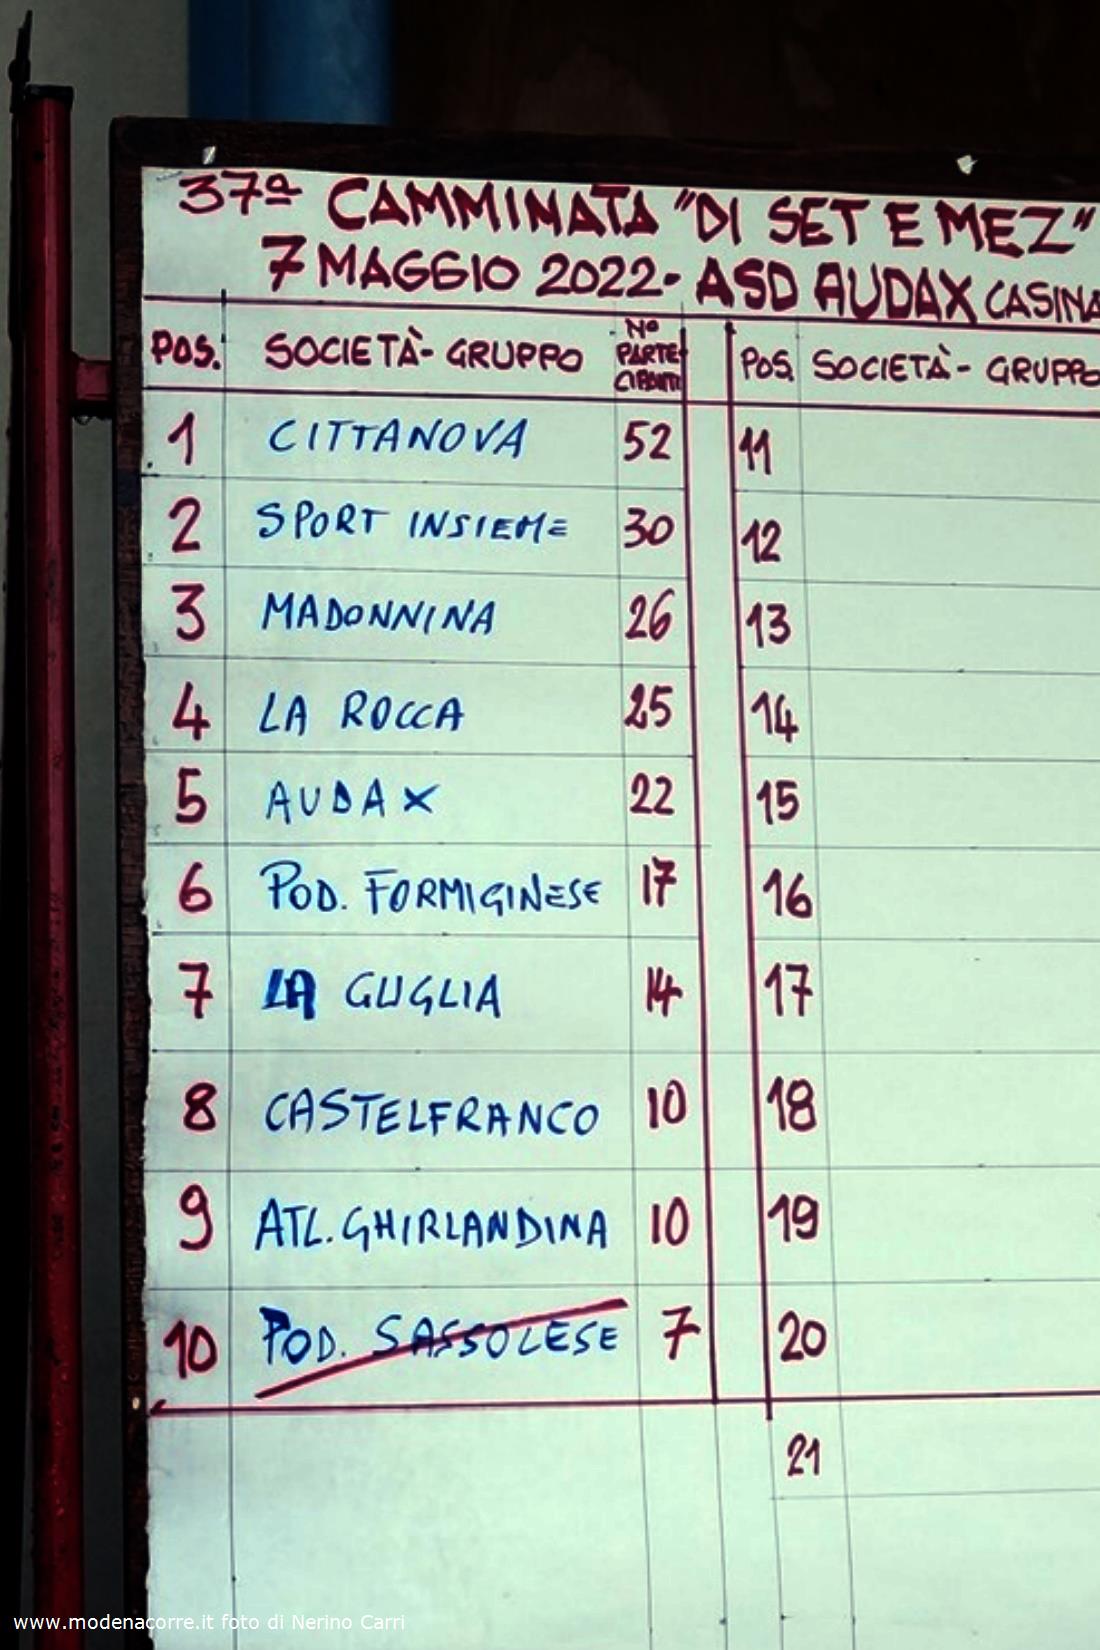 37ª CAMMINATA "DI SET E MEZ"
7 MAGGIO 2022- ASD AUDAX CASINA
POS. SOCIETÀ- GRUPPO Nº PARTECIPANTI POS. SOCIETÀ- GRUPPO
1 CITTANOVA 52 11
2 SPORT INSIEME 30 12
3 MADONNINA 26 13
4 LA ROCCA 25 14
5 AUDAX 22 15
6 POD. FORMIGINESE 17 16
7 LA GUGLIA 14 17
8 CASTELFRANCO 10 18
9 ATL. GHIRLANDINA 10 19
10 POD. SASSOLESE 7 20
21
www.modenacorre.it foto di Nerino Carri